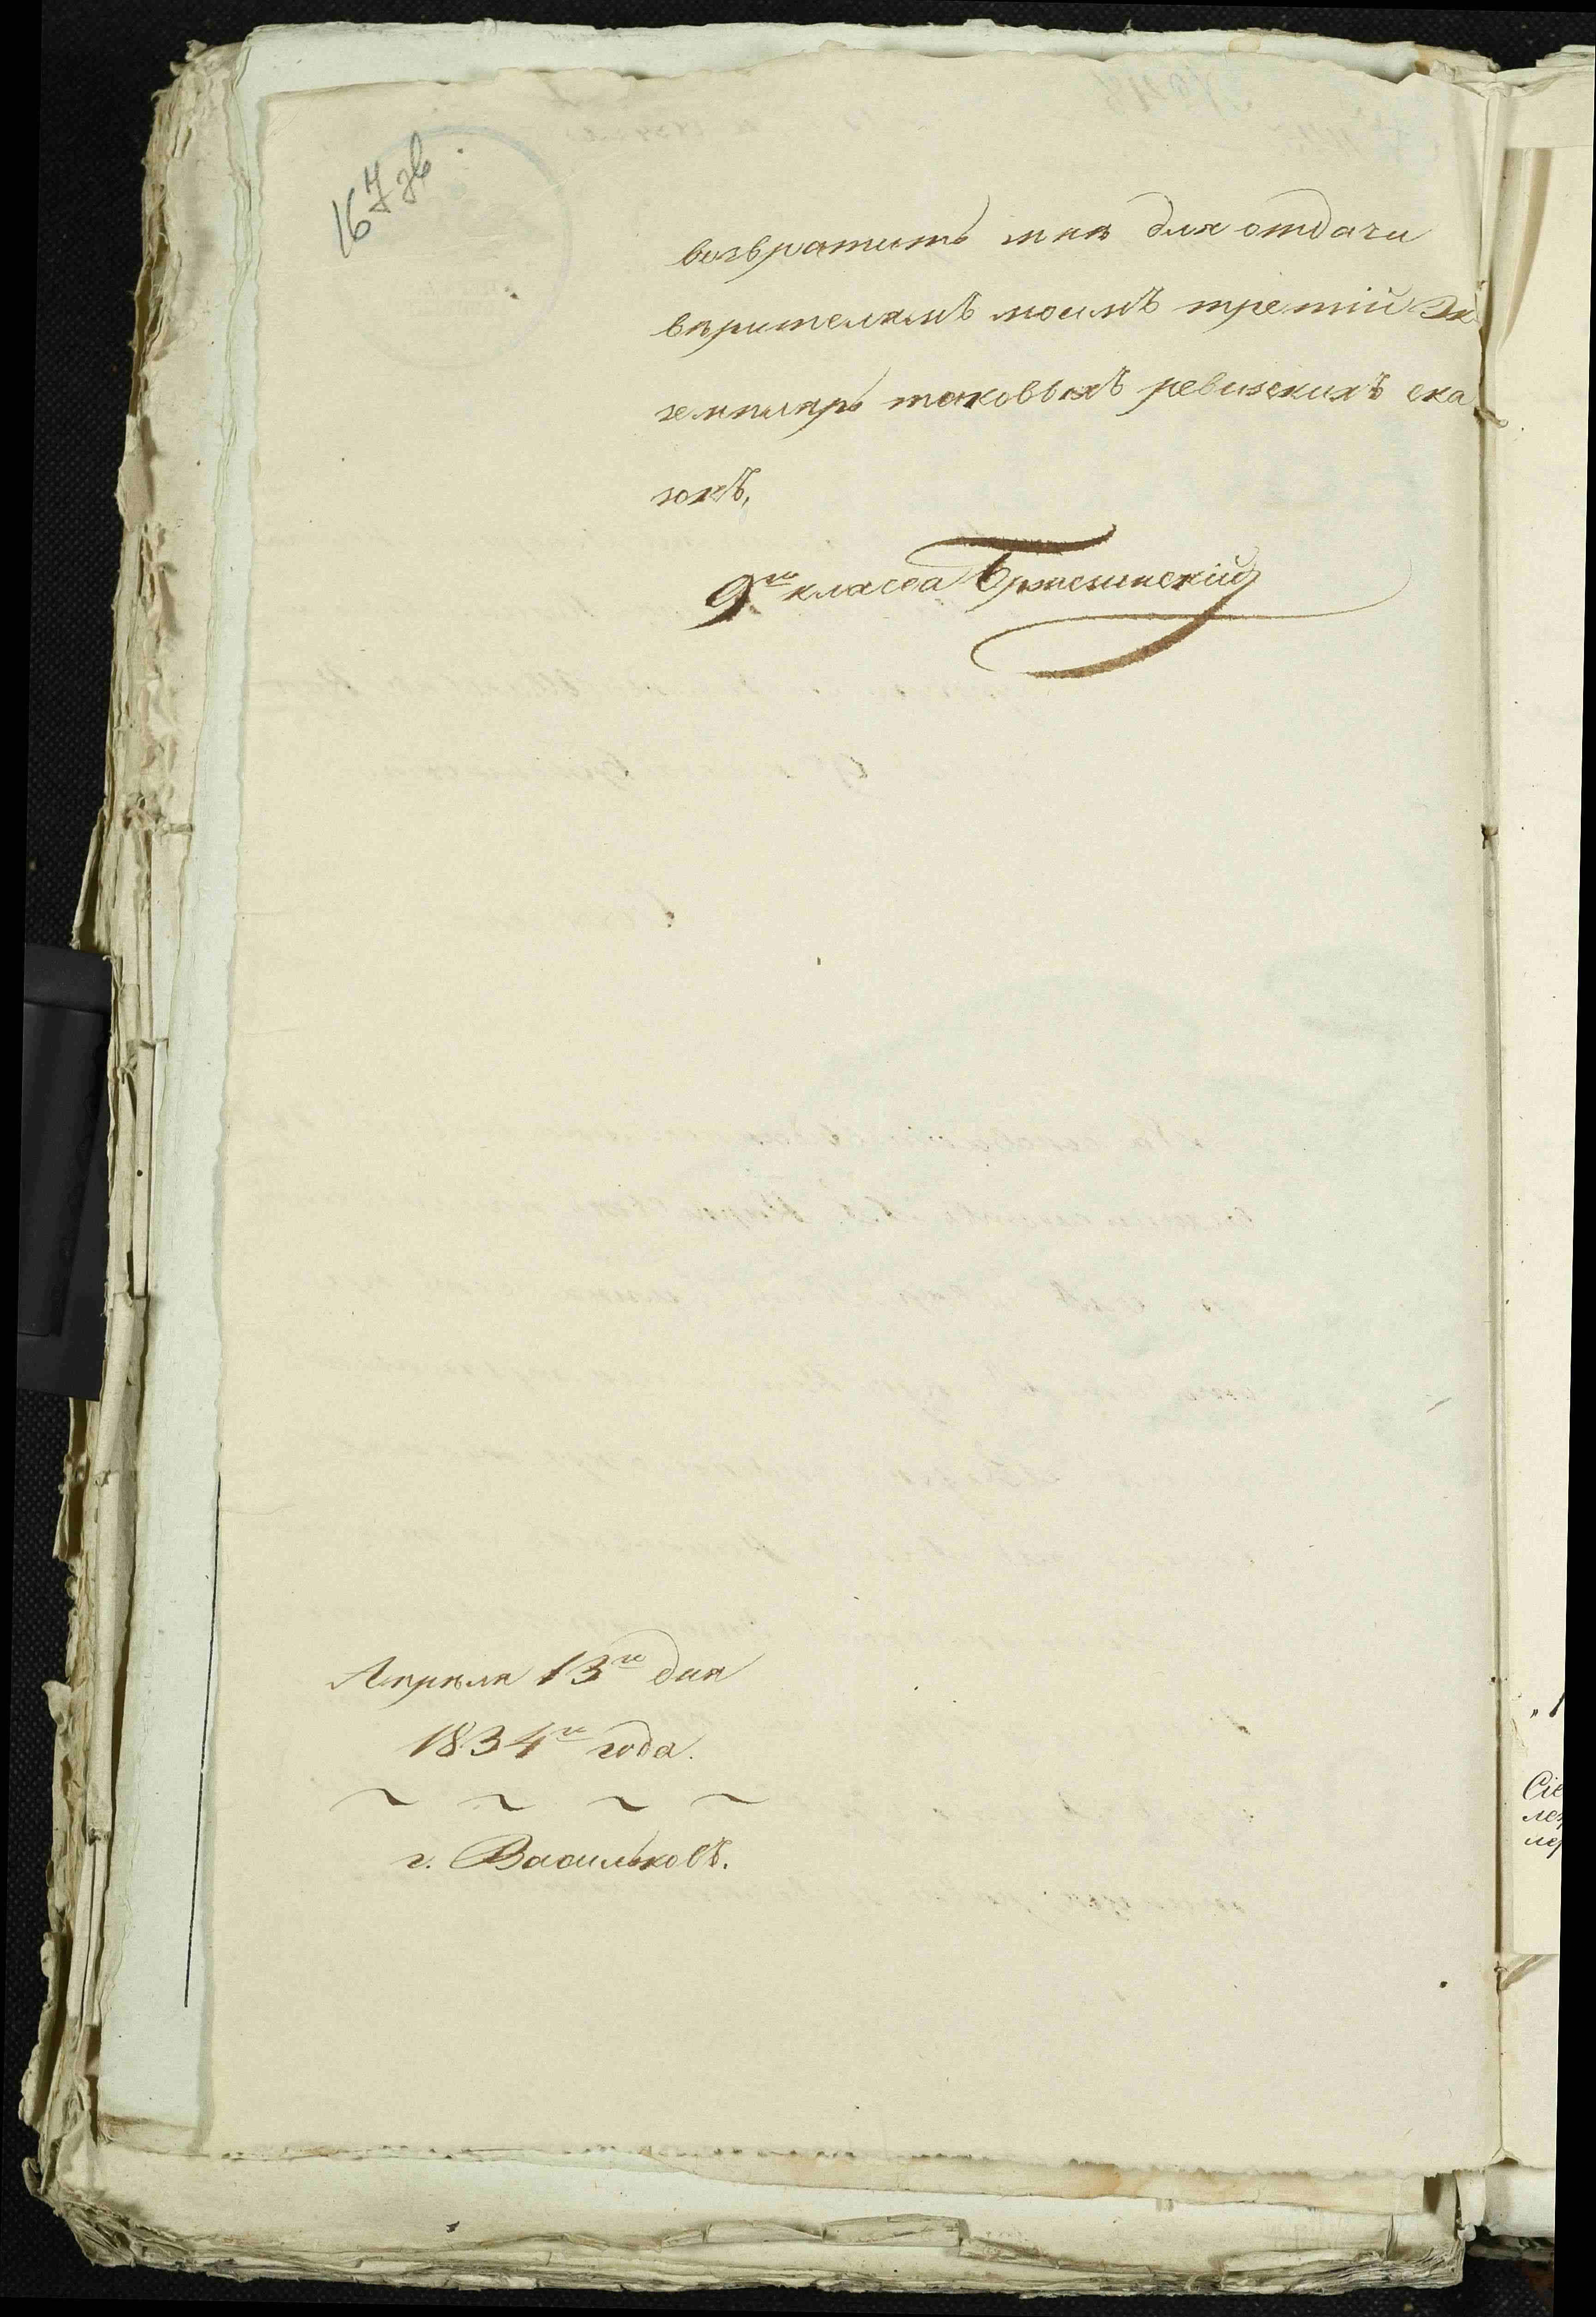 167 зв
возвратить мнѣ для отдачи
вѣрителямъ моимъ третій Эк
земпляръ таковыхъ ревизскихъ ска
зокъ.
9го класса Бржезинскій
Апрѣля 13го дня
1834го года.
~ ~ ~ ~
г. Васильковъ.